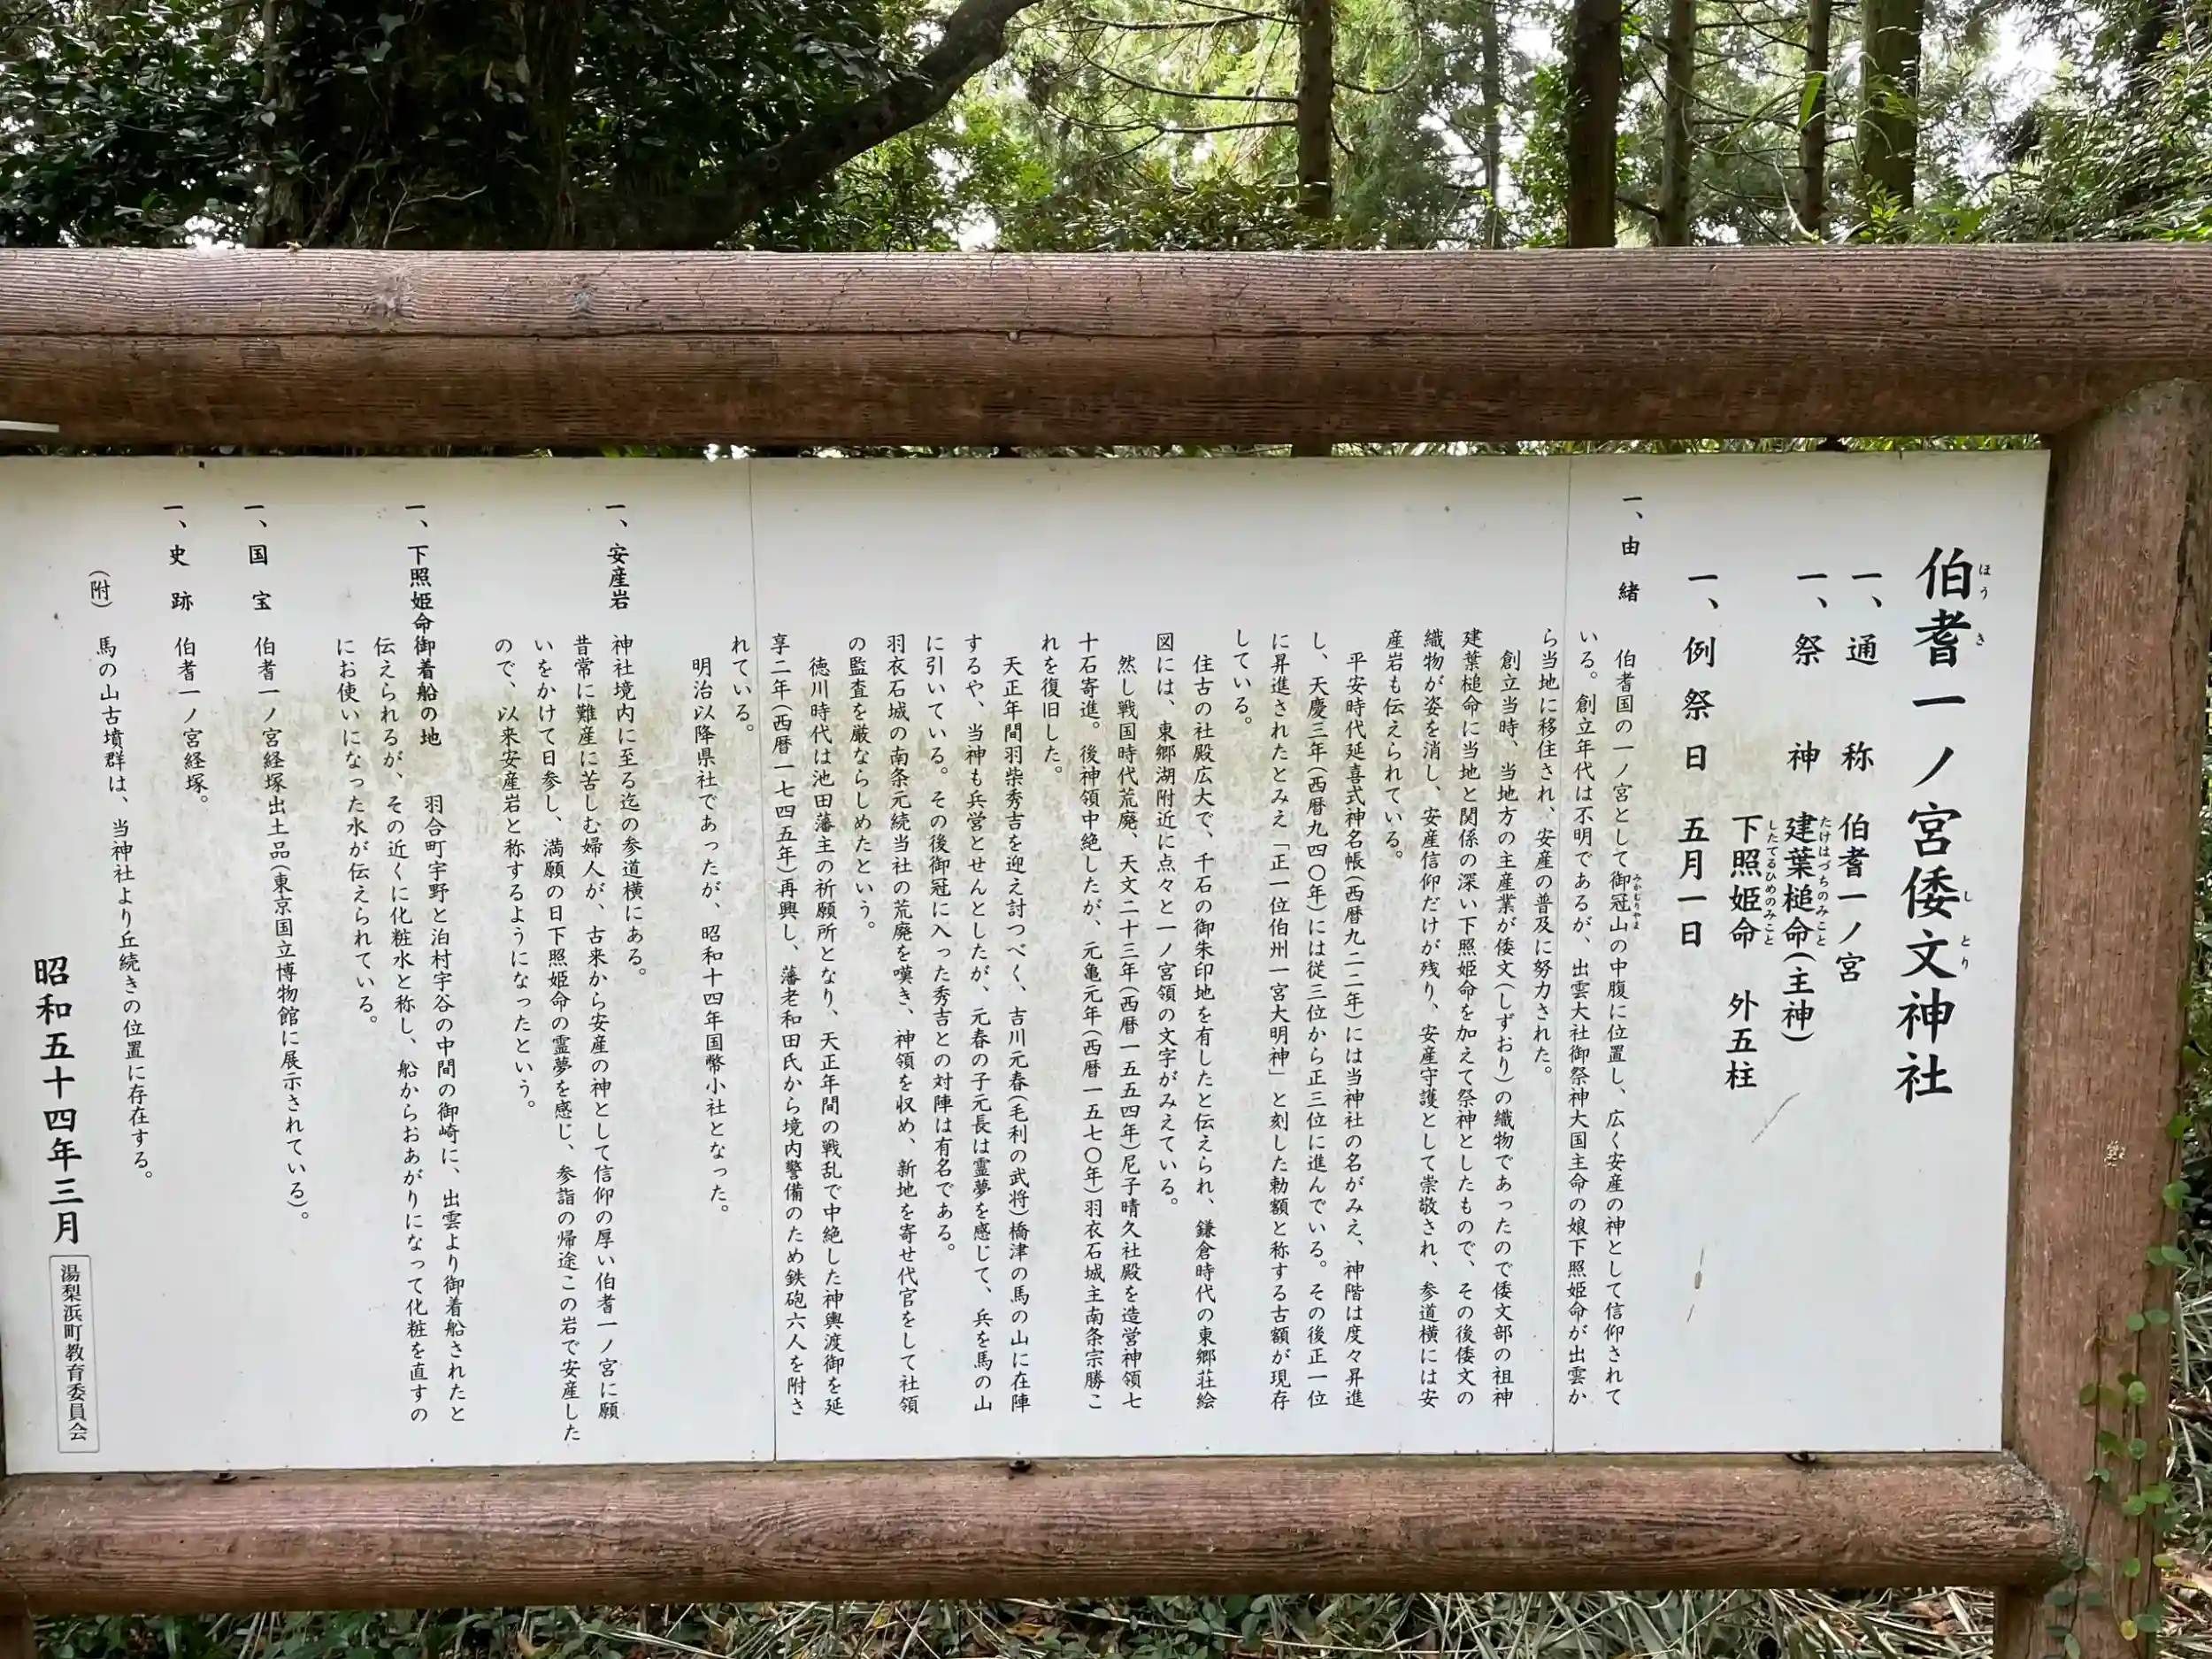 伯耆一ノ宮倭文神社
ほうき
しとり
一、通称 伯耆一ノ宮
一、祭神 建葉槌命(主神)
たけはづちのみこと
下照姫命 外五柱
したてるひめのみこと
一、例祭日 五月一日
一、由緒 伯耆国の一ノ宮として御冠山の中腹に位置し、広く安産の神として信仰されて
みかむりやま
いる。創立年代は不明であるが、出雲大社御祭神大国主命の娘下照姫命が出雲か
ら当地に移住され、安産の普及に努力された。
創立当時、当地方の主産業が倭文(しずおり)の織物であったので倭文部の祖神
建葉槌命に当地と関係の深い下照姫命を加えて祭神としたもので、その後倭文の
織物が姿を消し、安産信仰だけが残り、安産守護として崇敬され、参道横には安
産岩も伝えられている。
平安時代延喜式神名帳(西暦九二二年)には当神社の名がみえ、神階は度々昇進
し、天慶三年(西暦九四〇年)には従三位から正三位に進んでいる。その後正一位
に昇進されたとみえ「正一位伯州一宮大明神」と刻した勅額と称する古額が現存
している。
往古の社殿広大で、千石の御朱印地を有したと伝えられ、鎌倉時代の東郷荘絵
図には、東郷湖附近に点々と一ノ宮領の文字がみえている。
然し戦国時代荒廃、天文二十三年(西暦一五五四年)尼子晴久社殿を造営神領七
十石寄進。後神領中絶したが、元亀元年(西暦一五七〇年)羽衣石城主南条宗勝こ
れを復旧した。
天正年間羽柴秀吉を迎え討つべく、吉川元春(毛利の武将)橋津の馬の山に在陣
するや、当神も兵営とせんとしたが、元春の子元長は霊夢を感じて、兵を馬の山
に引いている。その後御冠に入った秀吉との対陣は有名である。
羽衣石城の南条元続当社の荒廃を嘆き、神領を収め、新地を寄せ代官をして社領
の監査を厳ならしめたという。
徳川時代は池田藩主の祈願所となり、天正年間の戦乱で中絶した神輿渡御を延
享二年(西暦一七四五年)再興し、藩老和田氏から境内警備のため鉄砲六人を附さ
れている。
明治以降県社であったが、昭和十四年国幣小社となった。
一、安産岩 神社境内に至る迄の参道横にある。
昔常に難産に苦しむ婦人が、古来から安産の神として信仰の厚い伯耆一ノ宮に願
いをかけて日参し、満願の日下照姫命の霊夢を感じ、参詣の帰途この岩で安産した
ので、以来安産岩と称するようになったという。
一、下照姫命御着船の地 羽合町宇野と泊村宇谷の中間の御崎に、出雲より御着船されたと
伝えられるが、その近くに化粧水と称し、船からおあがりになって化粧を直すの
にお使いになった水が伝えられている。
一、国宝 伯耆一ノ宮経塚出土品(東京国立博物館に展示されている)。
一、史跡 伯耆一ノ宮経塚。
(附) 馬の山古墳群は、当神社より丘続きの位置に存在する。
昭和五十四年三月 湯梨浜町教育委員会